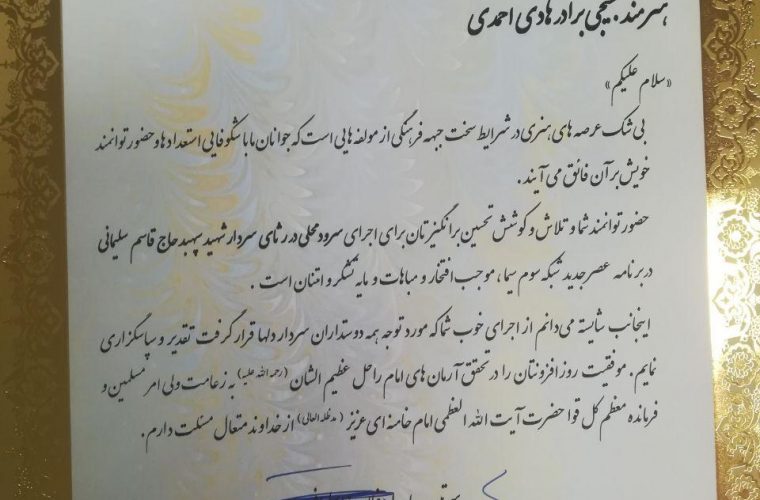 هنرمند بسیجی برادر هادی احمدی
«سلام علیکم»
بی شک عرصه های هنری در شرایط سخت جبهه فرهنگی از مولفه هایی است که جوانان ما با شکوفایی استعدادها و حضور توانمند
خویش بر آن فائق می آیند .
حضور توانمند شما و تلاش و کوشش تحسین برانگیزتان برای اجرای سرود محلی در رثای سردار شهید سپهبد حاج قاسم سلیمانی
در برنامه عصر جدید شبکه سوم سیما، موجب افتخار و مباهات و مایه تشکر و امتنان است .
اینجانب شایسته می دانم از اجرای خوب شما که مورد توجه همه دوستداران سردار دلها قرار گرفت تقدیر و سپاسگزاری
نمایم. موفقیت روزافزونتان را در تحقق آرمان های امام راحل عظیم الشان (رحمه الله علیه) به زعامت ولی امر مسلمین و
فرمانده معظم کل قوا حضرت آیت الله العظمی امام خامنه ای عزیز (مدظله العالی) از خداوند متعال مسئلت دارم.